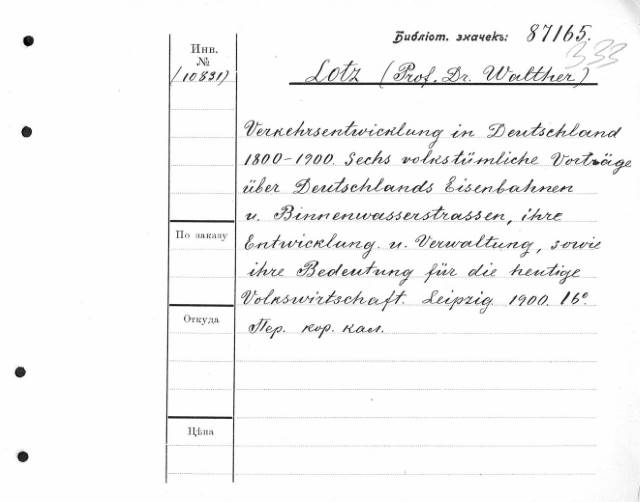 Библіот. значекъ: 87165.
333
Инв.
№
(10831)
Lotz (Prof. Dr. Walther)
Verkehrsentwicklung in Deutschland
1800-1900. Sechs volkstümliche Vorträge
über Deutschlands Eisenbahnen
u. Binnenwasserstrassen, ihre
По заказу
Entwicklung u. Verwaltung, sowie
ihre Bedeutung für die heutige
Volkswirtschaft. Leipzig. 1900. 16°.
Откуда
Пер. кор. кал.
Цѣна